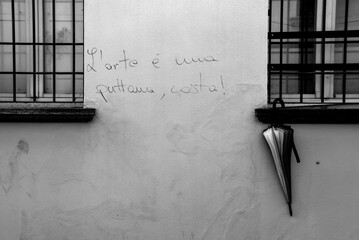 L'arte é una
puttana, costa!